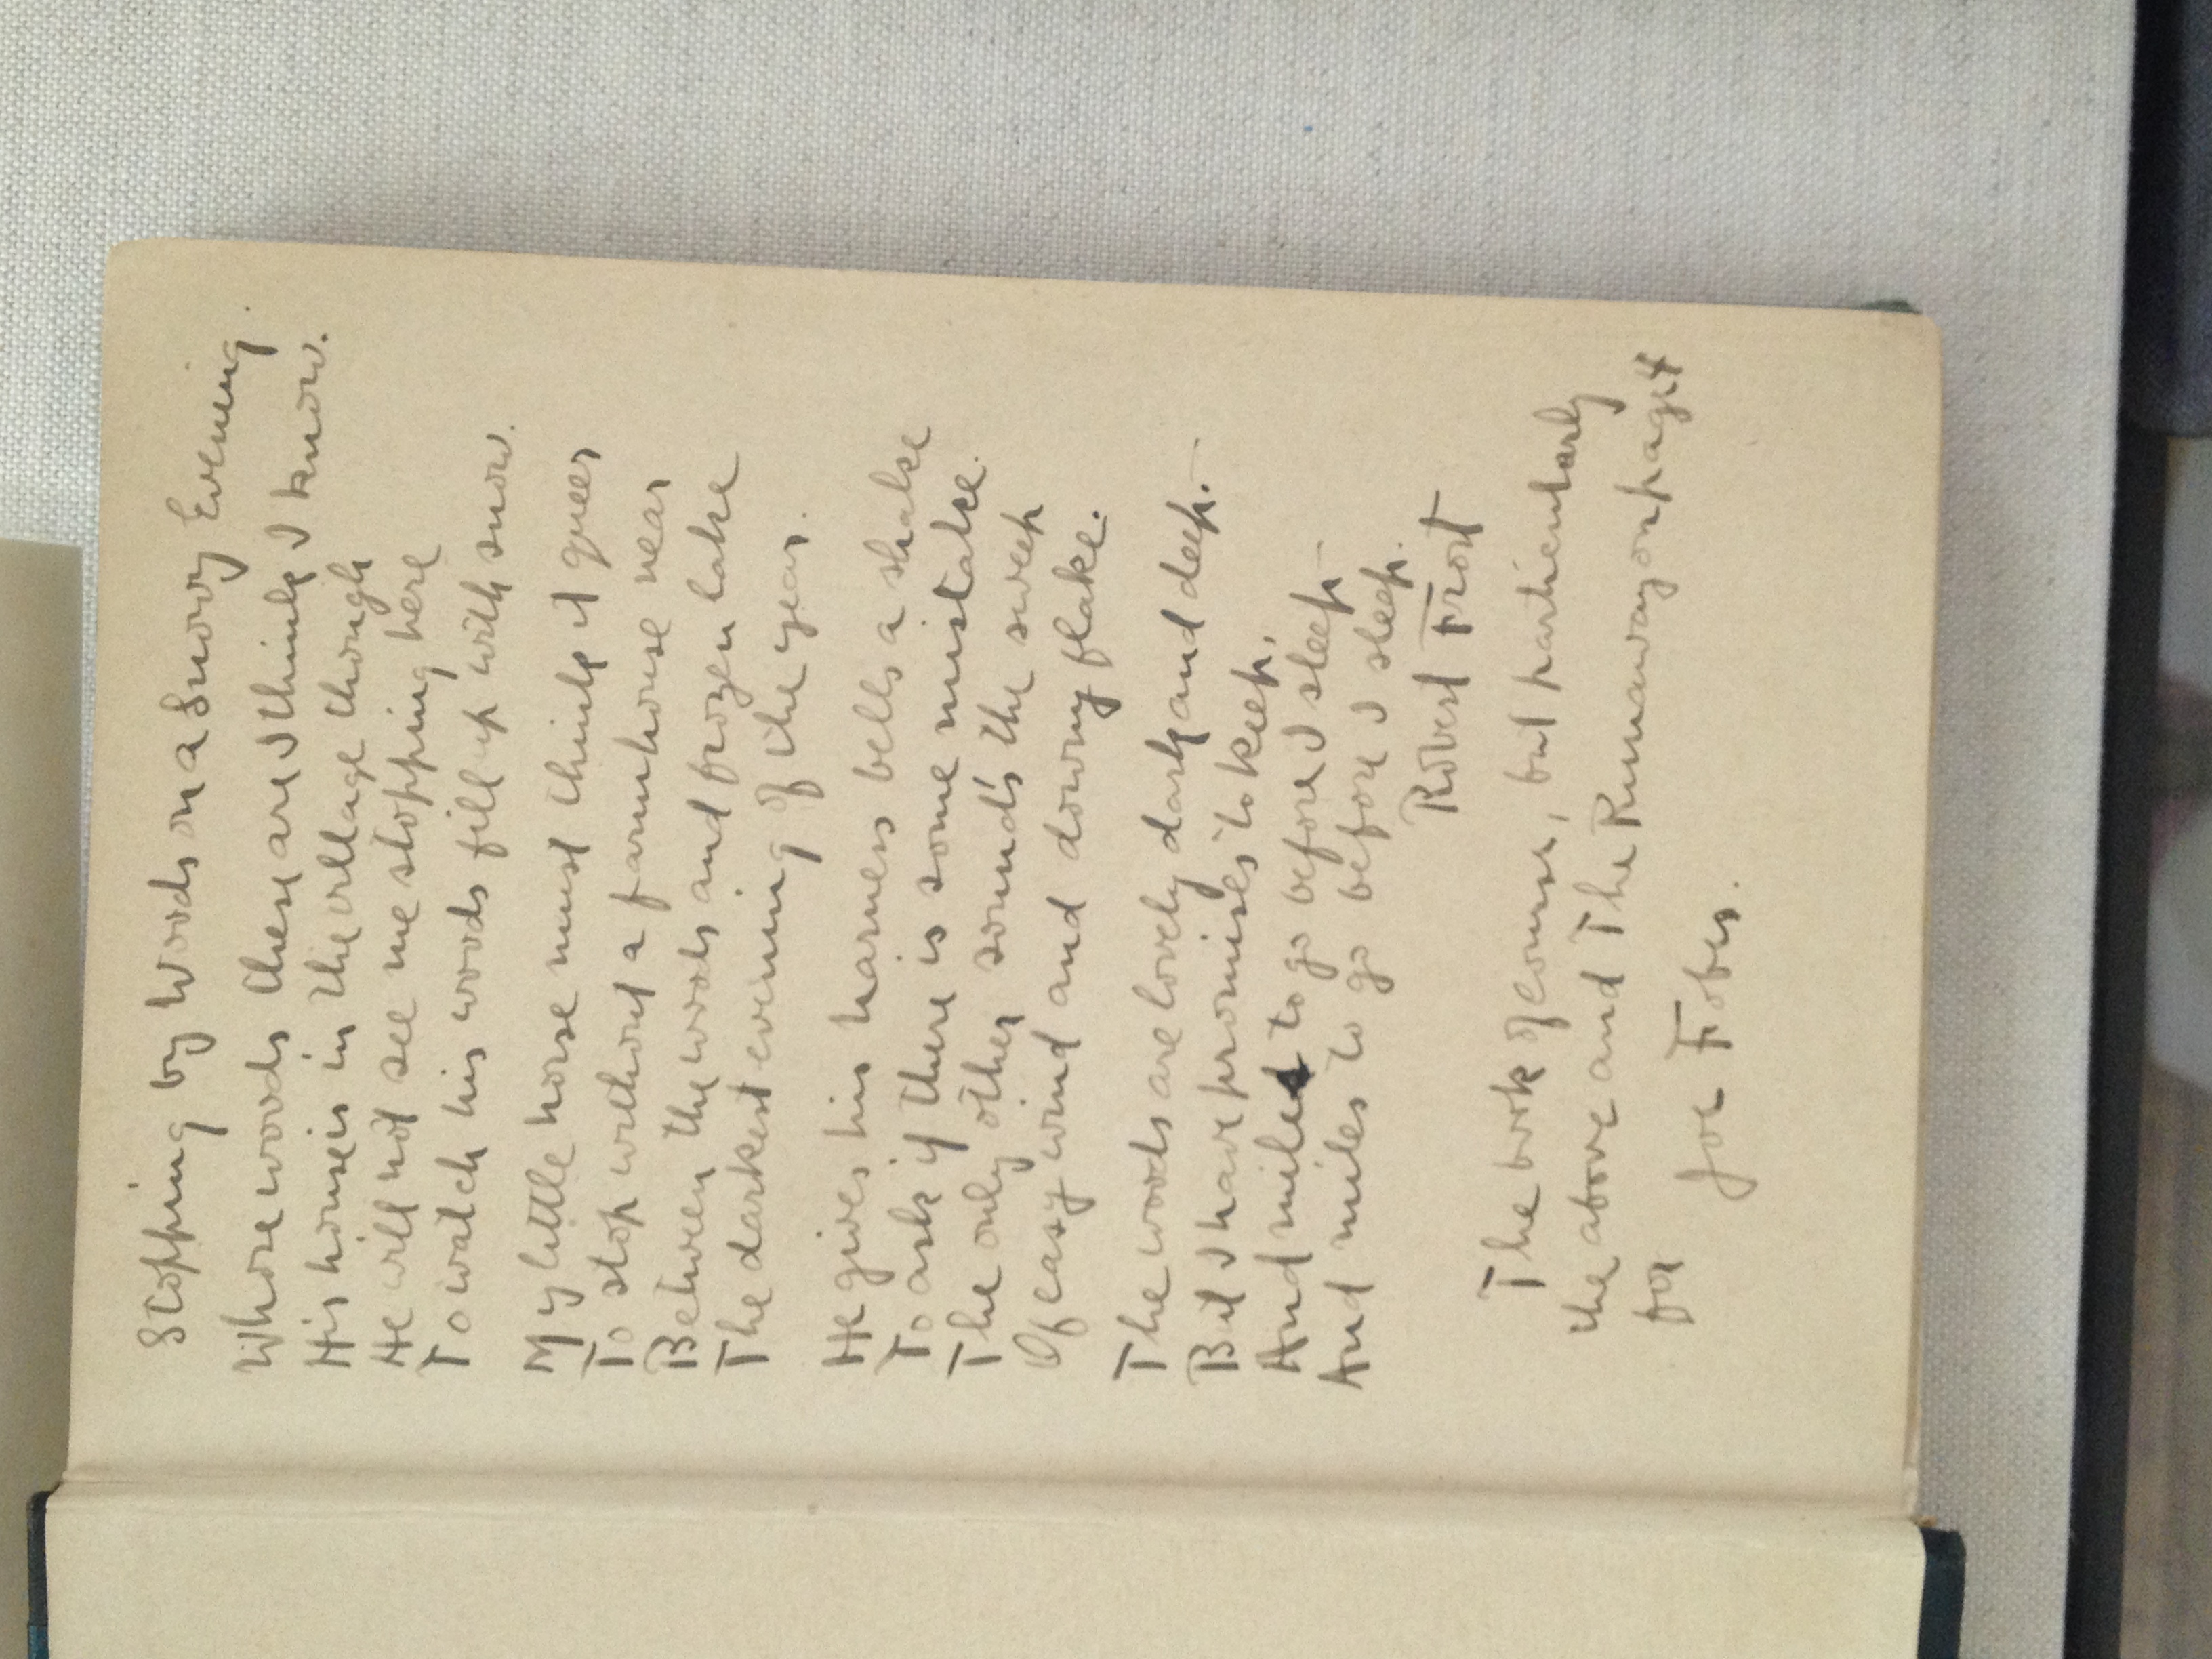 Stopping by Woods on a Snowy Evening.
Whose woods these are I think I know.
His house is in the village though
He will not see me stopping here
To watch his woods fill up with snow.
My little horse must think it queer
To stop without a farmhouse near
Between the woods and frozen lake
The darkest evening of the year.
He gives his harness bells a shake
To ask if there is some mistake.
The only other sound's the sweep
Of easy wind and downy flake.
The woods are lovely dark and deep.—
But I have promises to keep,
And miles to go before I sleep—
And miles to go before I sleep.
Robert Frost
The book of course, but particularly
the above and The Runaway on page 4
for
Joe Fobes.